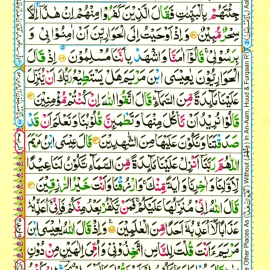 جِئْتَهُمْ بِالْبَيِّنٰتِ فَقَالَ الَّذِيْنَ كَفَرُوْا مِنْهُمْ اِنْ هٰذَاۤ اِلَّا
سِحْرٌ مُّبِيْنٌ وَاِذْ اَوْحَيْتُ اِلَى الْحَوَارِيّٖنَ اَنْ اٰمِنُوْا بِيْ وَ
بِرَسُوْلِيْ قَالُوْۤا اٰمَنَّا وَاشْهَدْ بِاَنَّنَا مُسْلِمُوْنَ اِذْ قَالَ
الْحَوَارِيُّوْنَ يٰعِيْسَى ابْنَ مَرْيَمَ هَلْ يَسْتَطِيْعُ رَبُّكَ اَنْ يُّنَزِّلَ
عَلَيْنَا مَآئِدَةً مِّنَ السَّمَآءِ قَالَ اتَّقُوا اللّٰهَ اِنْ كُنْتُمْ مُّؤْمِنِيْنَ
قَالُوْا نُرِيْدُ اَنْ نَّاْكُلَ مِنْهَا وَتَطْمَئِنَّ قُلُوْبُنَا وَنَعْلَمَ اَنْ قَدْ
صَدَقْتَنَا وَنَكُوْنَ عَلَيْهَا مِنَ الشّٰهِدِيْنَ قَالَ عِيْسَى ابْنُ مَرْيَمَ
اللّٰهُمَّ رَبَّنَاۤ اَنْزِلْ عَلَيْنَا مَآئِدَةً مِّنَ السَّمَآءِ تَكُوْنُ لَنَا عِيْدًا
لِّاَوَّلِنَا وَاٰخِرِنَا وَاٰيَةً مِّنْكَ وَارْزُقْنَا وَاَنْتَ خَيْرُ الرّٰزِقِيْنَ
قَالَ اللّٰهُ اِنِّيْ مُنَزِّلُهَا عَلَيْكُمْ فَمَنْ يَّكْفُرْ بَعْدُ مِنْكُمْ فَاِنِّيْۤ اُعَذِّبُهٗ
عَذَابًا لَّاۤ اُعَذِّبُهٗۤ اَحَدًا مِّنَ الْعٰلَمِيْنَ وَاِذْ قَالَ اللّٰهُ يٰعِيْسَى ابْنَ
مَرْيَمَ ءَاَنْتَ قُلْتَ لِلنَّاسِ اتَّخِذُوْنِيْ وَاُمِّيَ اِلٰهَيْنِ مِنْ دُوْنِ
e Other Places As Without In An-Aam, Huud & Furqaan R